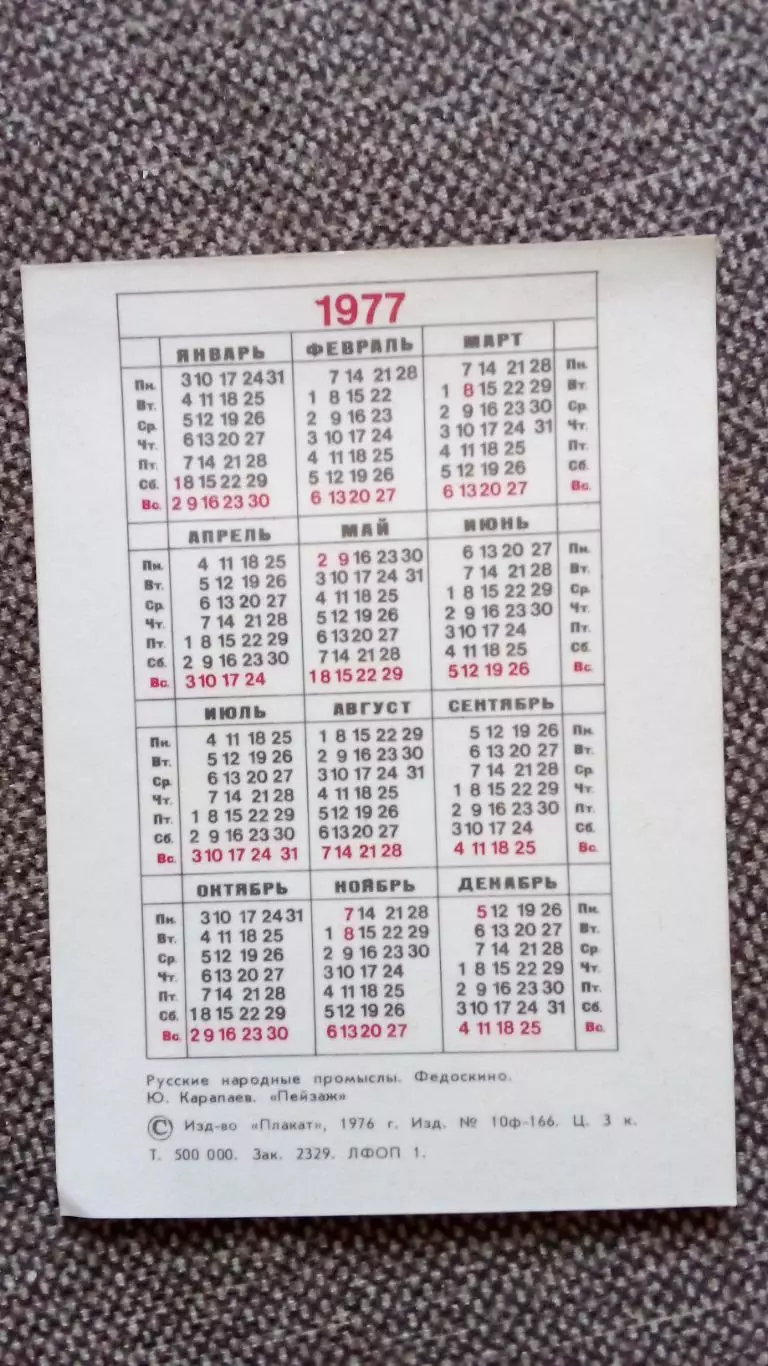 1977
ЯНВАРЬ ФЕВРАЛЬ МАРТ
Пн. 3 10 17 24 31 7 14 21 28 7 14 21 28 Пн.
Вт. 4 11 18 25 1 8 15 22 1 8 15 22 29 Вт.
Ср. 5 12 19 26 2 9 16 23 2 9 16 23 30 Ср.
Чт. 6 13 20 27 3 10 17 24 3 10 17 24 31 Чт.
Пт. 7 14 21 28 4 11 18 25 4 11 18 25 Пт.
Сб. 1 8 15 22 29 5 12 19 26 5 12 19 26 Сб.
Вс. 2 9 16 23 30 6 13 20 27 6 13 20 27 Вс.
АПРЕЛЬ МАЙ ИЮНЬ
Пн. 4 11 18 25 2 9 16 23 30 6 13 20 27 Пн.
Вт. 5 12 19 26 3 10 17 24 31 7 14 21 28 Вт.
Ср. 6 13 20 27 4 11 18 25 1 8 15 22 29 Ср.
Чт. 7 14 21 28 5 12 19 26 2 9 16 23 30 Чт.
Пт. 1 8 15 22 29 6 13 20 27 3 10 17 24 Пт.
Сб. 2 9 16 23 30 7 14 21 28 4 11 18 25 Сб.
Вс. 3 10 17 24 1 8 15 22 29 5 12 19 26 Вс.
ИЮЛЬ АВГУСТ СЕНТЯБРЬ
Пн. 4 11 18 25 1 8 15 22 29 5 12 19 26 Пн.
Вт. 5 12 19 26 2 9 16 23 30 6 13 20 27 Вт.
Ср. 6 13 20 27 3 10 17 24 31 7 14 21 28 Ср.
Чт. 7 14 21 28 4 11 18 25 1 8 15 22 29 Чт.
Пт. 1 8 15 22 29 5 12 19 26 2 9 16 23 30 Пт.
Сб. 2 9 16 23 30 6 13 20 27 3 10 17 24 Сб.
Вс. 3 10 17 24 31 7 14 21 28 4 11 18 25 Вс.
ОКТЯБРЬ НОЯБРЬ ДЕКАБРЬ
Пн. 3 10 17 24 31 7 14 21 28 5 12 19 26 Пн.
Вт. 4 11 18 25 1 8 15 22 29 6 13 20 27 Вт.
Ср. 5 12 19 26 2 9 16 23 30 7 14 21 28 Ср.
Чт. 6 13 20 27 3 10 17 24 1 8 15 22 29 Чт.
Пт. 7 14 21 28 4 11 18 25 2 9 16 23 30 Пт.
Сб. 1 8 15 22 29 5 12 19 26 3 10 17 24 31 Сб.
Вс. 2 9 16 23 30 6 13 20 27 4 11 18 25 Вс.
Русские народные промыслы. Федоскино.
Ю. Карапаев. «Пейзаж»
© Изд-во «Плакат», 1976 г. Изд. № 10ф-166. Ц. 3 к.
Т. 500 000. Зак. 2329. ЛФОП 1.